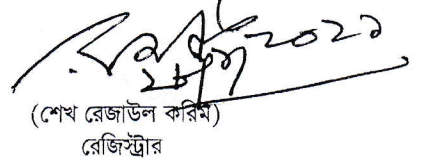 ২০২১
(শেখ রেজাউল করিম)
রেজিস্ট্রার